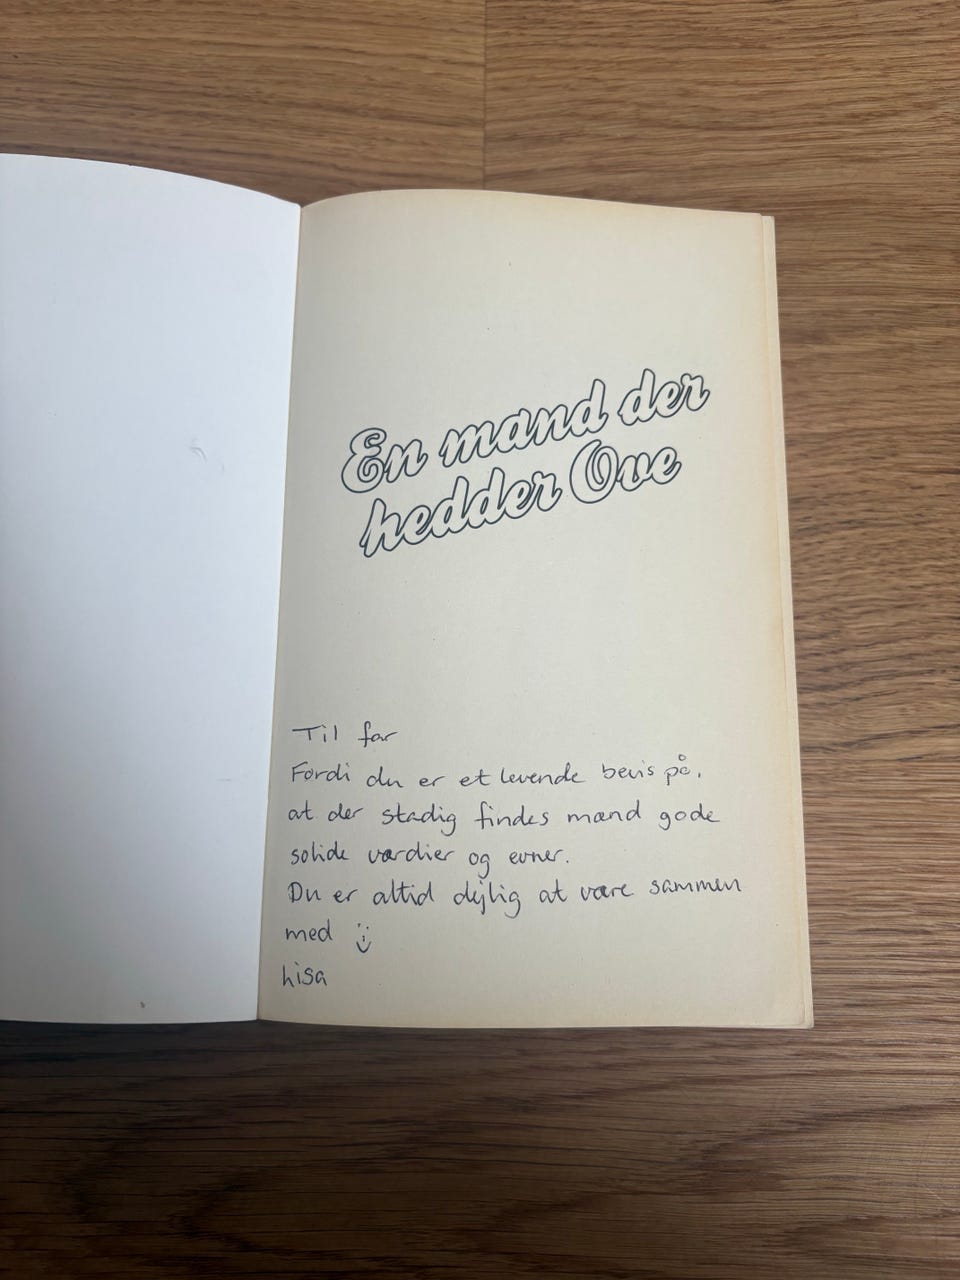 En mand der
hedder Ove
Til far
Fordi du er et levende bevis på,
at der stadig findes mænd gode
solide værdier og evner.
Du er altid dejlig at være sammen
med :)
Lisa